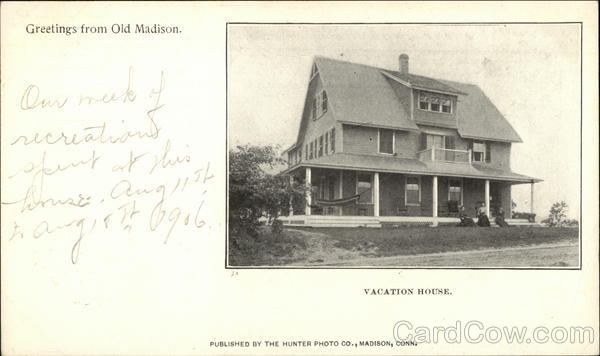 Greetings from Old Madison.
Our week of
recreation
spent at this
house. Aug 11th
to Aug 18th 1906.
VACATION HOUSE.
PUBLISHED BY THE HUNTER PHOTO CO., MADISON, CONN.
CardCow.com